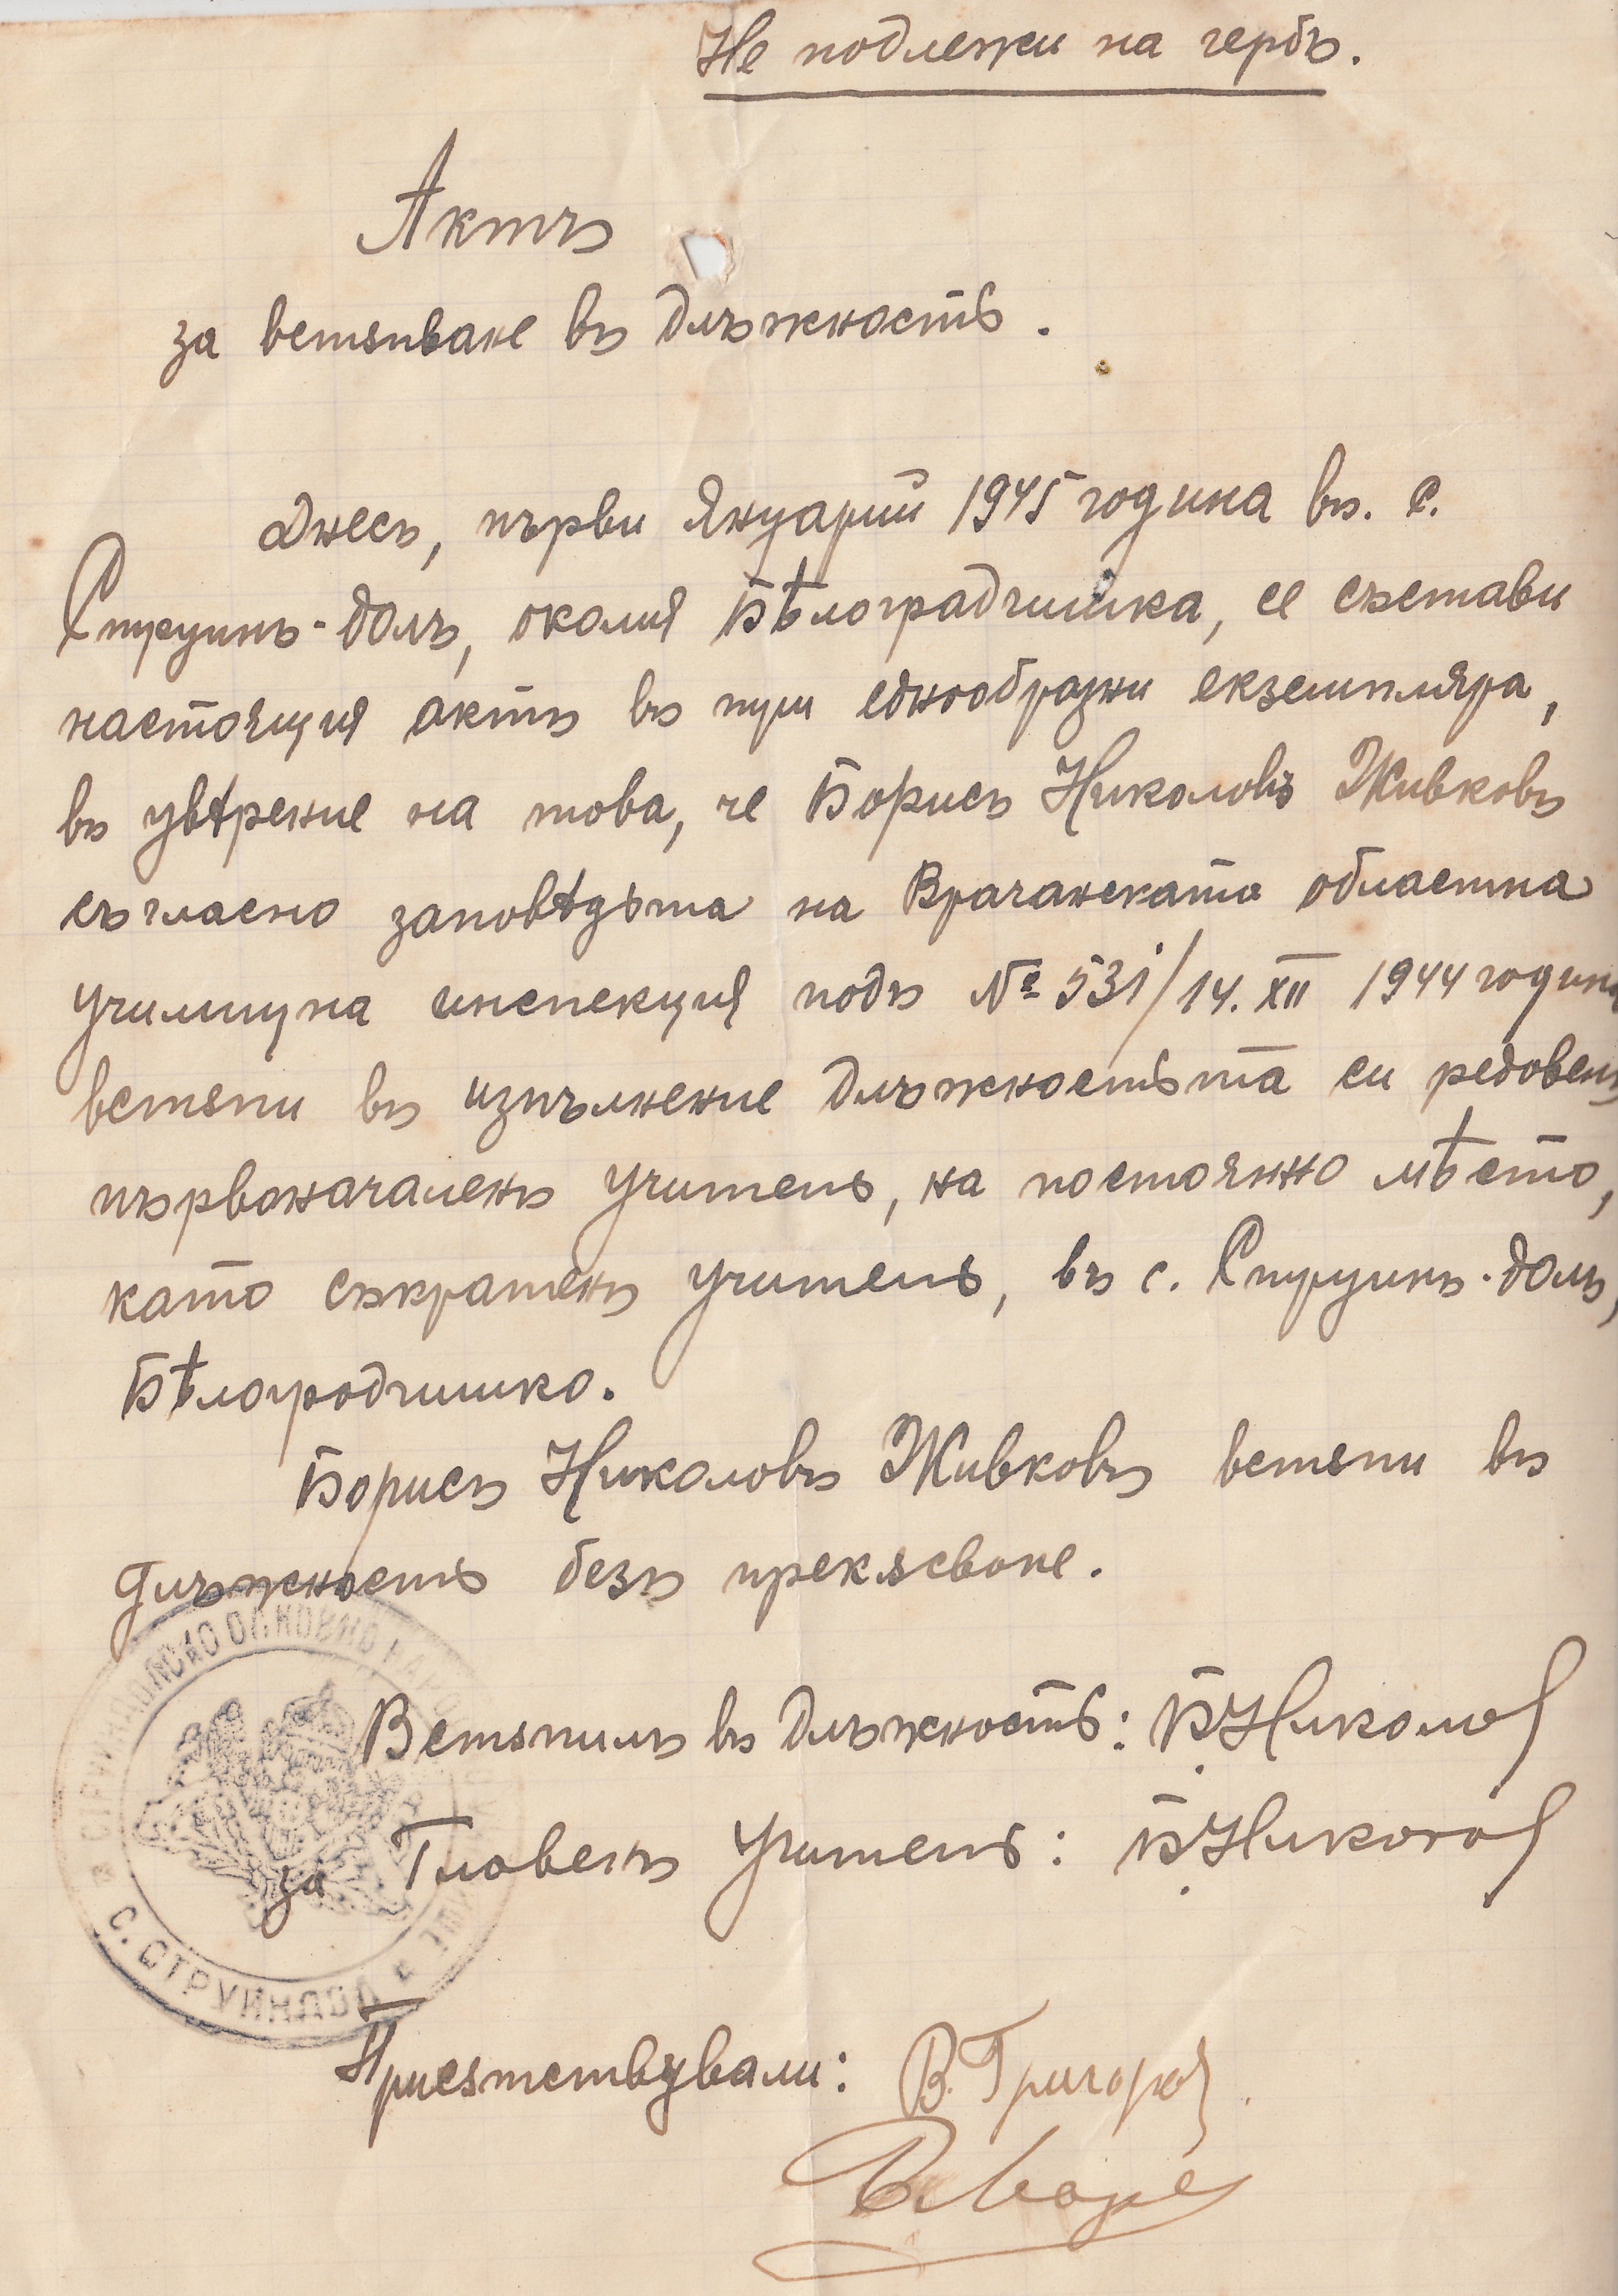 Не подлежи на гербъ.
Актъ
за встѫпване въ длъжность.
Днесъ, първи Януарий 1945 година въ. с.
Струинъ-долъ, околия Бѣлоградчишка, се състави
настоящия актъ въ три еднообразни екземпляра,
въ увѣрение на това, че Борисъ Николовъ Живковъ
съгласно заповѣдьта на Врачанската областна
училищна инспекция подъ № 531/14. XII 1944 година
встѫпи въ изпълнение длъжностьта си редовенъ
първоначаленъ учитель, на постоянно мѣсто,
като съкратенъ учитель, въ с. Струинъ-долъ,
Бѣлоградчишко.
Борисъ Николовъ Живковъ встѫпи въ
длъжность безъ прекѫсване.
Встѫпилъ въ длъжность: Б. Николов
за Главенъ учитель: Б. Николов
С. СТРУИНДОЛ
Присѫтствували: В. Григоров